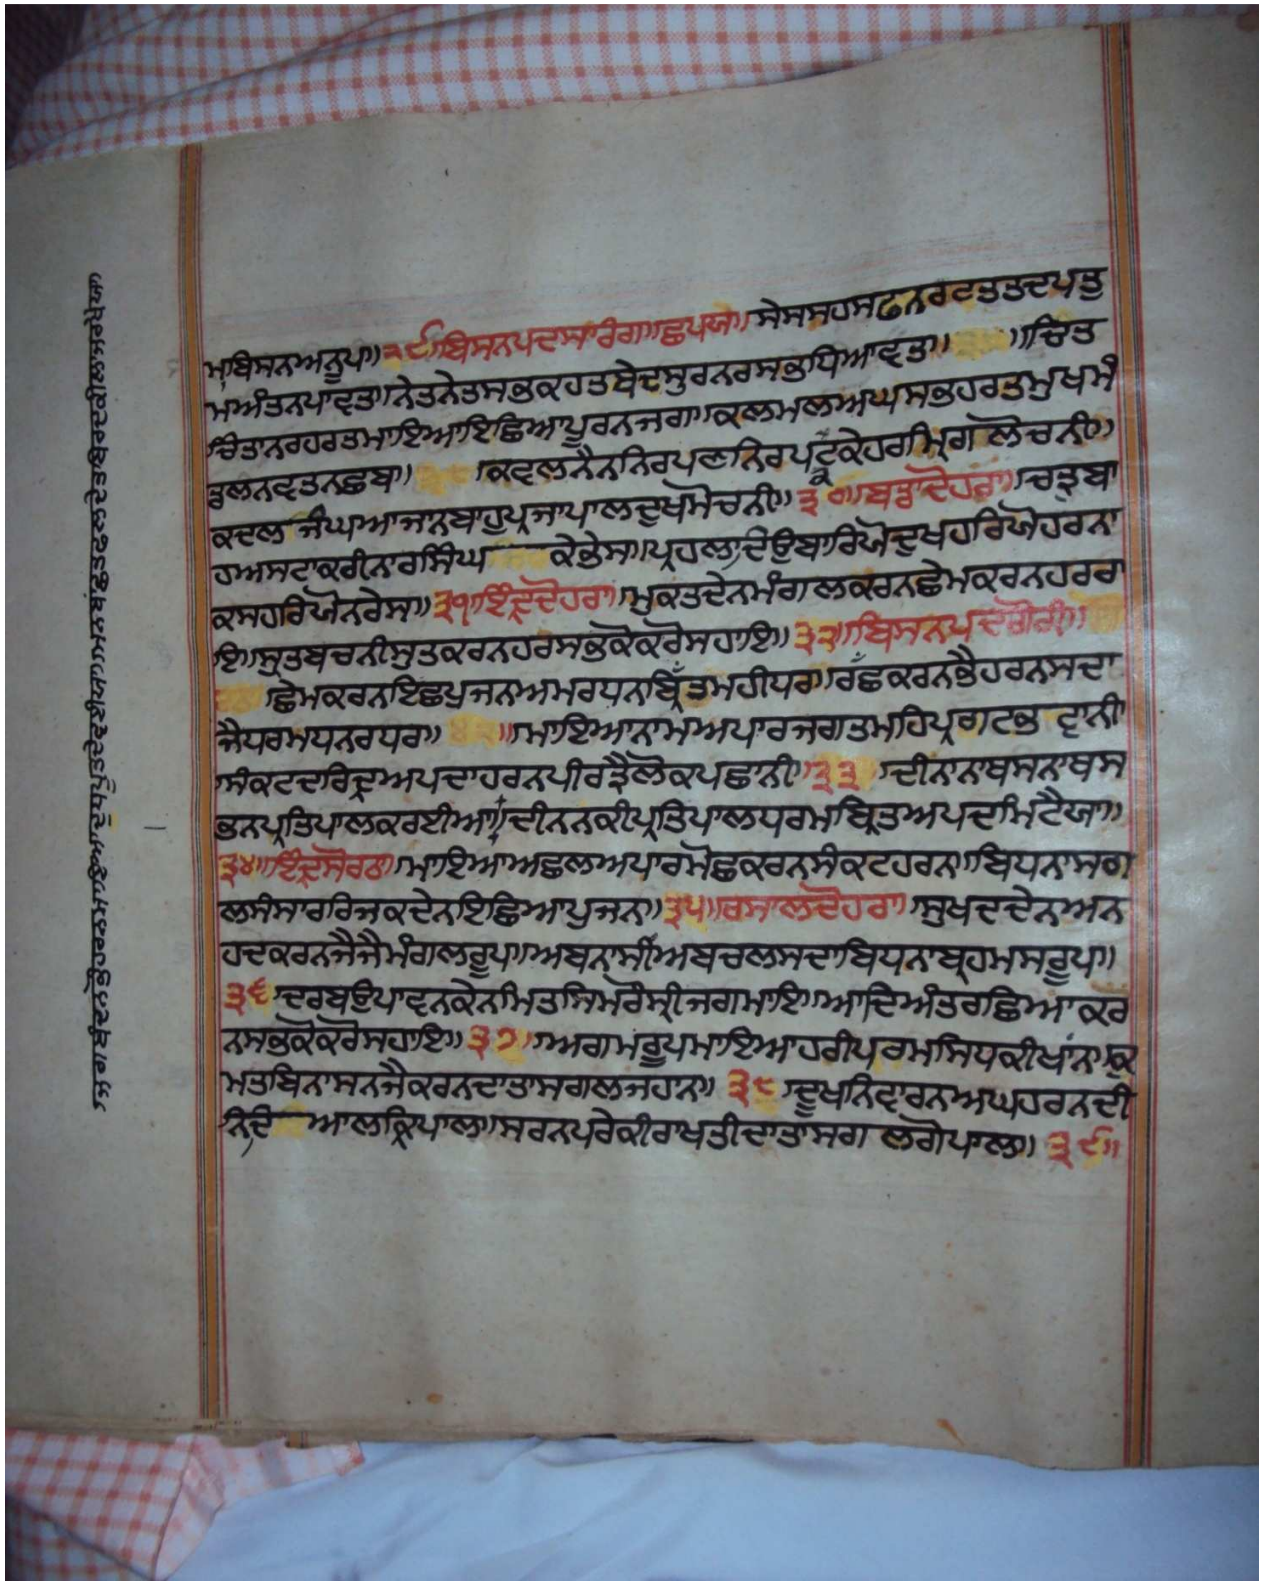 ਮਾਬਿਸਨਾਅਨੂਪਾ॥੨੯॥ਬਿਸਨਪਦਸਾਰੰਗ॥ਛਪਯ॥ਸੇਸਸਹਸਫਨਰਟਤਤਦਪਤੁ
ਮਅੰਤਨਪਾਵਤਾ॥ਨੇਤਨੇਤਸਭਕਹਤਬੇਦਸੁਰਨਰਸਭਧਿਆਵਤਾ॥ ॥ਚਿਤ
ਚਿੰਤਾਨਰਹਰਤਮਾਇਆਇਛਿਆਪੂਰਨਜਗ॥ਕਲਮਲਅਘਸਭਹਰਤਮੁਖਮੰ
ਤੁਲਨਵਤਨਛਬਾ॥ ਕਵਲਨੈਨਨਿਰਪਣਨਿਰਪਟੂਕੇਹਰਮ੍ਰਿਗਲੋਚਨੀ॥
ਕਦਲਜੰਘਾਆਜਾਨਬਾਹੁਪ੍ਰਜਾਪਾਲਦੁਖਮੋਚਨੀ॥੩੦॥ਬਡਾਦੋਹਰਾ॥ਚੜ੍ਬਾ
ਹਅਸਟਾਕਰੀਨਾਰਸਿੰਘ ਕੇਭੇਸ॥ਪ੍ਰਹਲਾਦਉਬਾਰਿਯੋਦੁਖਹਰਿਯੋਹਰਨਾ
ਕਸਹਰਿਯੋਨਰੇਸ॥੩੧॥ਇੰਦ੍ਰਦੋਹਰਾ॥ਮੁਕਤਦੇਨਮੰਗਲਕਰਨਛੇਮਕਰਨਹਰਰਾ
ਇ॥ਸੁਤਬਚਨੀਸੁਤਕਰਨਹਰਸਭਕੋਕਰੋਸਹਾਇ॥੩੨॥ਬਿਸਨਪਦਗੌਰੀ॥
ਛੇਮਕਰਨਇਛਪ੍ਰਜਨਅਮਰਧਨਬ੍ਰਿੰਤਮਹੀਧਰ॥ਰੱਛਕਰਨਭੈਹਰਨਸਦਾ
ਜੈਧਰਮਧਨਰਧਰ॥ ॥ਮਾਇਆਨਾਮਅਪਾਰਜਗਤਮਹਿਪ੍ਰਗਟਭਵਾਨੀ
ਸੰਕਟਦਾਰਿਦ੍ਰਅਪਦਾਹਰਨਪੀਰਤ੍ਰੈਲੋਕਪਛਾਨੀ॥੩੩॥ਦੀਨਾਨਾਥਸਨਾਥਸ
ਭਨਪ੍ਰਤਿਪਾਲਕਰਈਆ॥ਦੀਨਨਕੀਪ੍ਰਤਿਪਾਲਧਰਮਬ੍ਰਿਤਅਪਦਮਿਟੈਯਾ॥
੩੪॥ਇੰਦ੍ਰਸੋਰਠਾ॥ਮਾਇਆਅਛਲਅਪਾਰਮੋਛਕਰਨਸੰਕਟਹਰਨ॥ਬਿਧਨਾਸਗ
ਲਸੰਸਾਰਰਿਜਕਦੇਨਇਛਿਆਪੁਜਨ॥੩੫॥ਰਸਾਲਦੋਹਰਾ॥ਸੁਖਦਦੇਨਅਨ
ਹਦਕਰਨਜੈਜੈਮੰਗਲਰੂਪ॥ਅਬਨਾਸੀਅਬਚਲਸਦਾਬਿਧਨਾਬ੍ਰਹਮਸਰੂਪ॥
੩੬॥ਦਰਬਉਪਾਵਨਕੇਨਮਿਤਸਿਮਰੌਸ੍ਰੀਜਗਮਾਇ॥ਆਦਿਅੰਤਰਛਿਆਕਰ
ਨਸਭਕੋਕਰੋਸਹਾਇ॥੩੭॥ਅਗਮਰੂਪਮਾਇਆਹਰੀਪਰਮਸਿਧਕੀਖਾਨ॥ਕੁ
ਮਤਬਿਨਾਸਨਜੈਕਰਨਦਾਤਾਸਗਲਜਹਾਨ॥੩੮॥ਦੂਖਨਿਵਾਰਨਅਘਹਰਨਦੀ
ਨਦਿ ਆਲਕ੍ਰਿਪਾਲ॥ਸਰਨਪਰੇਕੀਰਾਖਤੀਦਾਤਾਸਗਲਗੋਪਾਲ॥੩੯॥